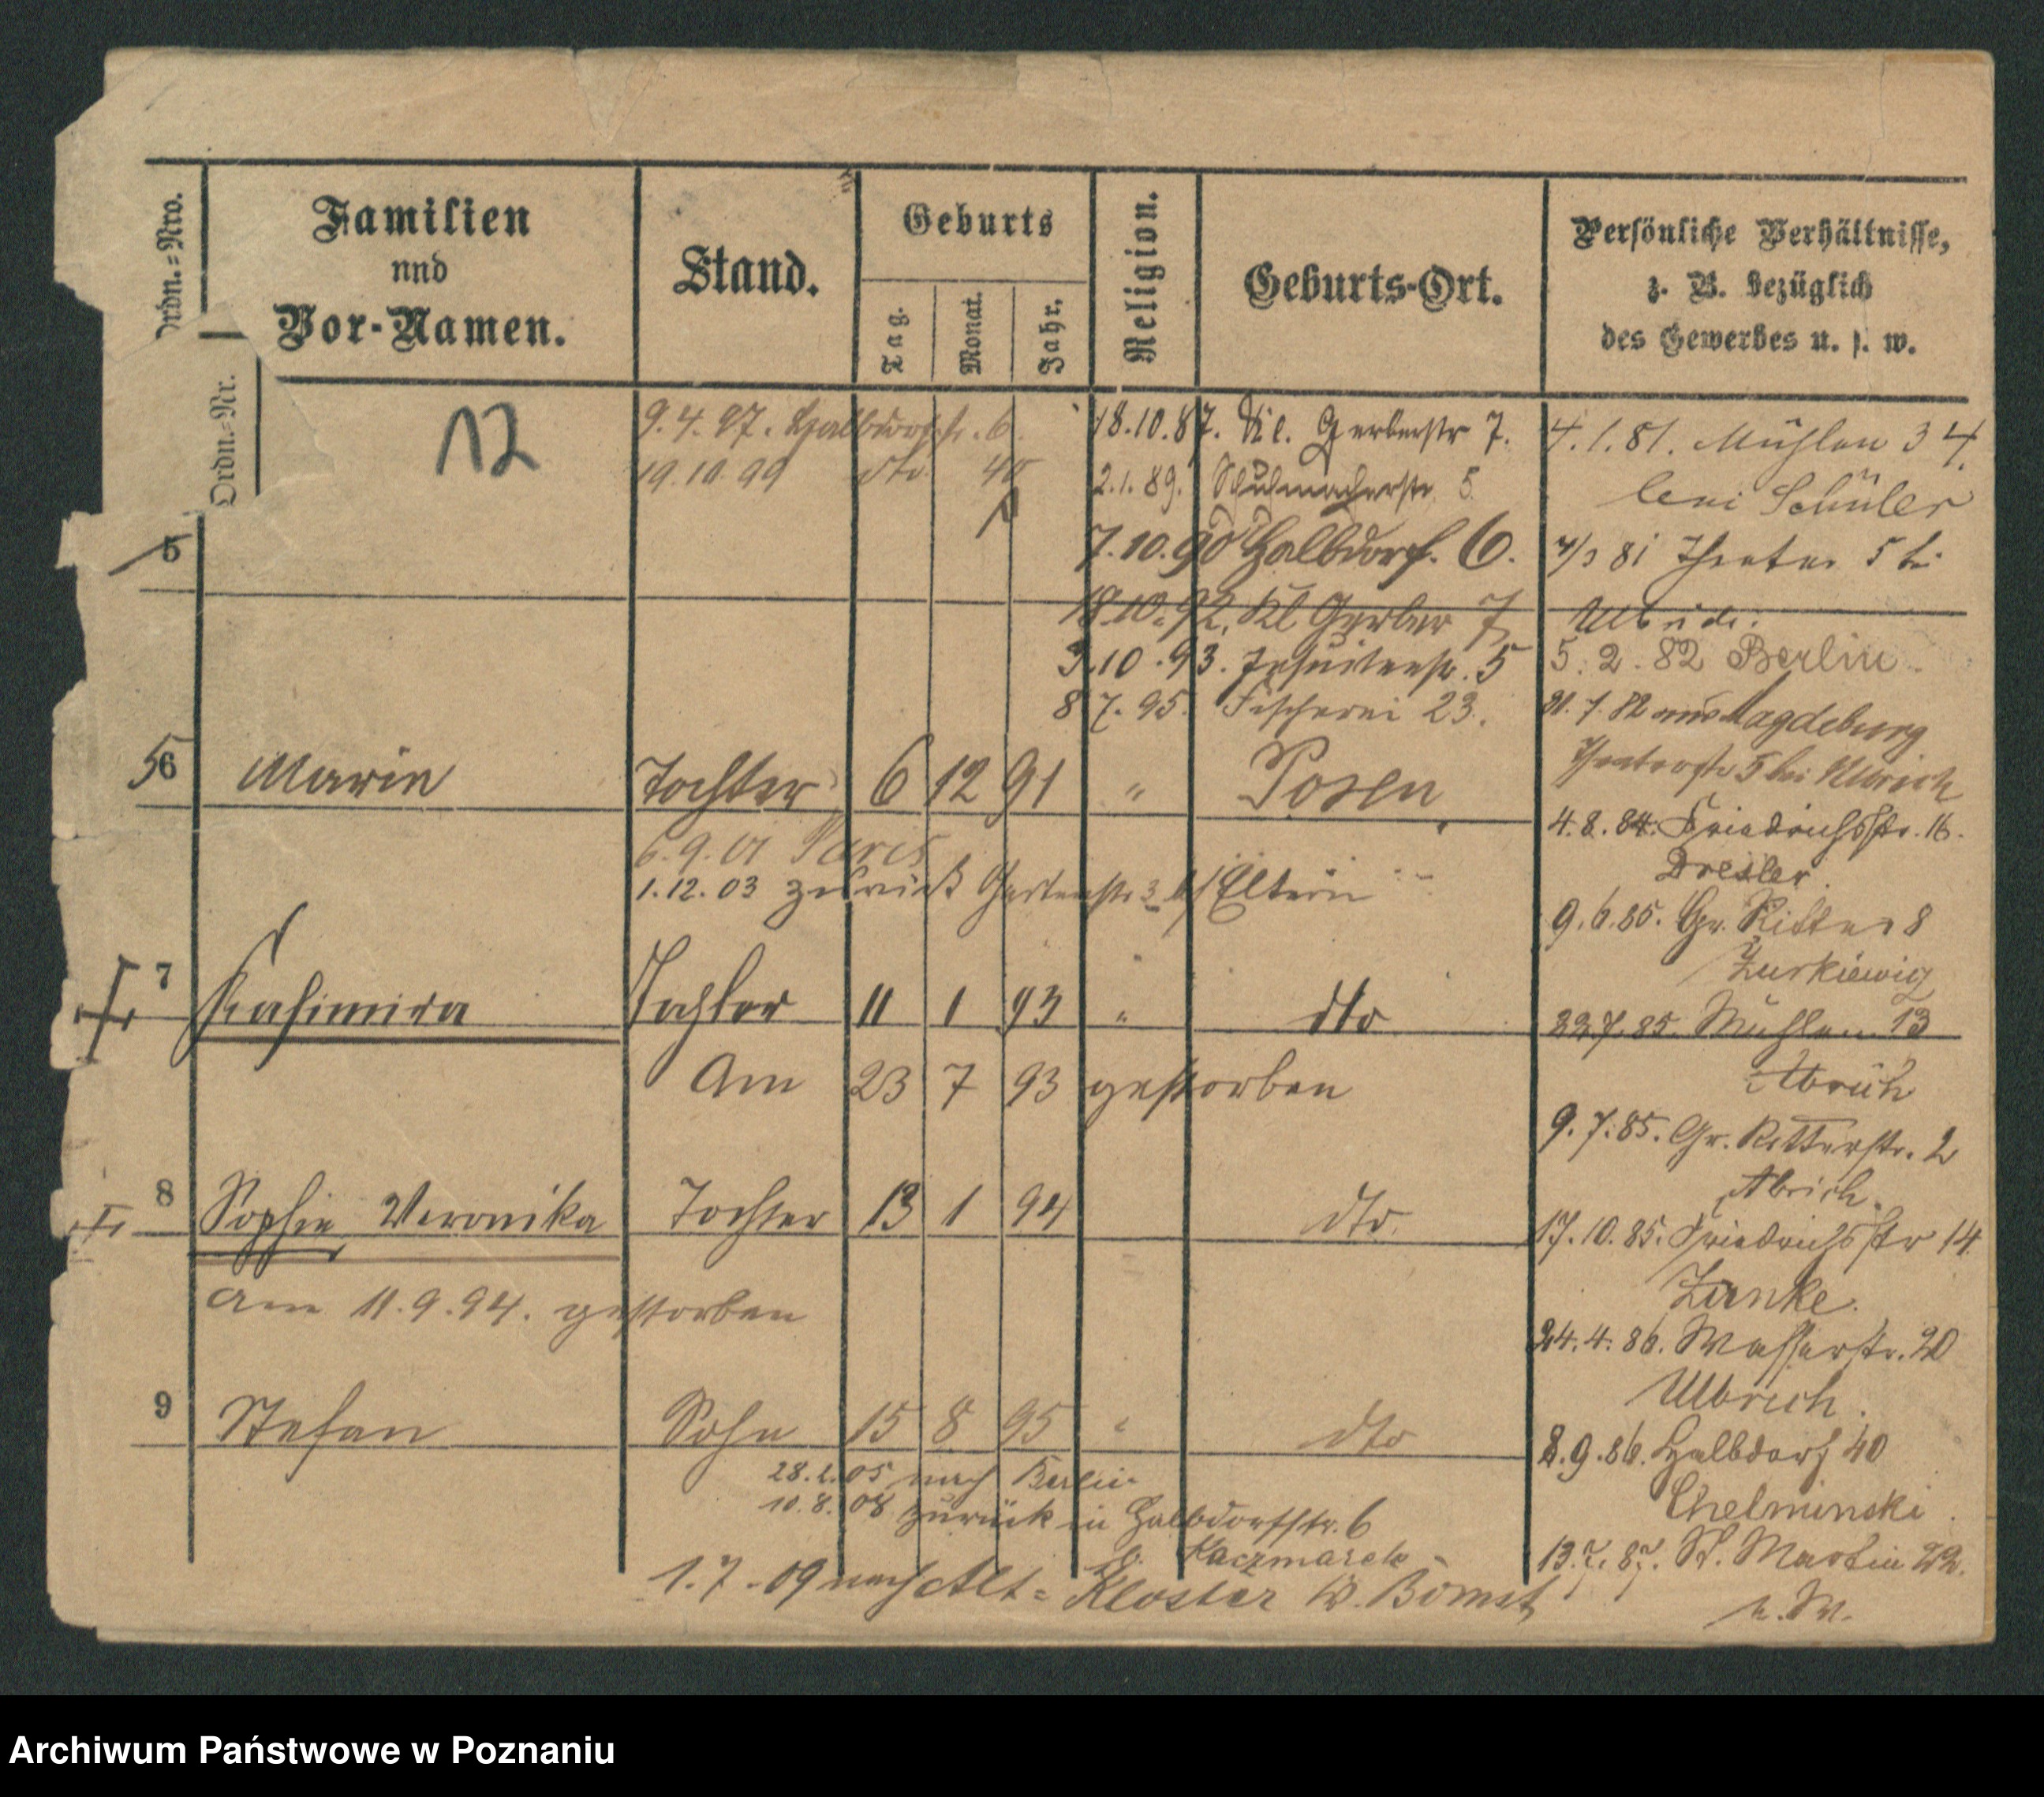 Ordn.-Nro.
Familien
und
Vor-Namen.
Stand.
Geburts
Tag.
Monat.
Jahr.
Religion.
Geburts-Ort.
Persönliche Verhältnisse,
z. B. bezüglich
des Gewerbes u. s. w.
Ordn.-Nr.
12
9.4.97. Halbdorfstr. 6.
19.10.99 dto. 40
18.10.87. Kl. Gerberstr 7.
2.1.89. Schuhmacherstr. 5.
7.10.90 Halbdorf. 6.
18.10.92. Kl Gerber 7
3.10.93. Jesuitenstr. 5
8 7. 95. Fischerei 23.
5
56 Marie Tochter 6 12 91 " Posen
6.9.01 Paris
1.12.03 zurück Gartenstr 3 b/Eltern
7 Kasimira Tochter 11 1 93 " dto
Am 23 7 93 gestorben
8 Sophie Veronika Tochter 13 1 94 dto.
Am 11.9.94. gestorben
9 Stefan Sohn 15 8 95 " dto
28.2.05 nach Berlin
10.8.08 zurück in Halbdorfstr. 6
b. Kaczmarek
1.7.09 nach Alt-Kloster Kr. Bomst
4.1.81. Mühlen 34
Schüler
81 Theater 5 bei
5.2.82 Berlin
82 aus Magdeburg
Theaterstr 5 bei Ulbrich
4.8.84. Friedrichsstr. 16.
Dresler.
9.6.85. Gr. Ritter 8
Zurkiewig
22.7.85. Mühlen 13
9.7.85. Gr. Ritterstr. 2
17.10.85. Friedrichsstr 14
Zanke.
24.4.86. Wasserstr. 20
Ulbrich.
8.9.86. Halbdorf 40
Chelminski.
13.7.87. St. Martin 22.